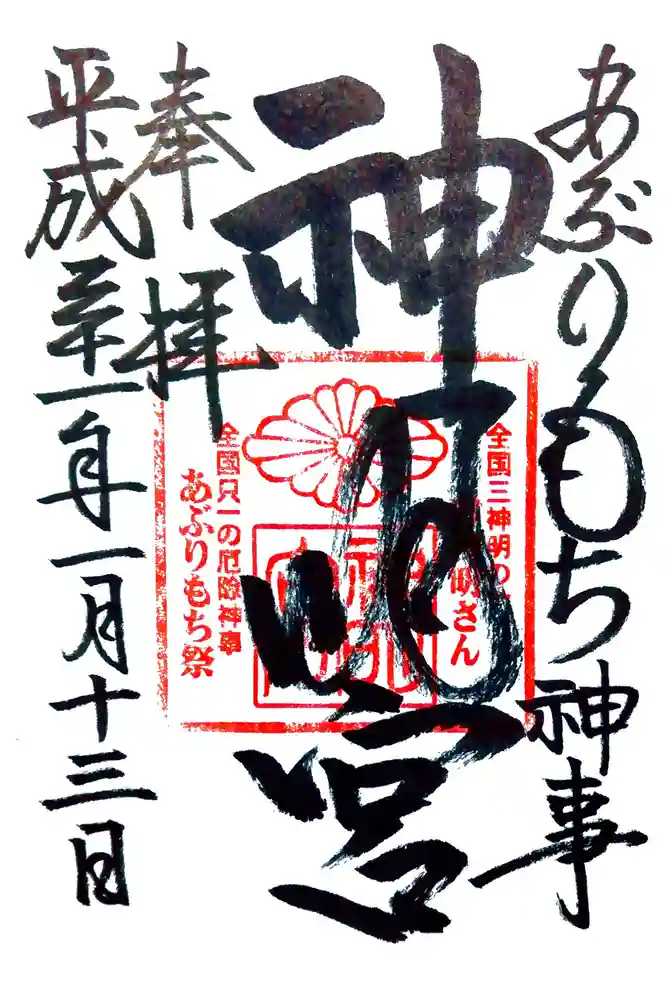 あぶりもち神事
神明宮
奉拝
平成三十一年一月十三日
全国三神明の
明さん
全国只一の厄除神事
あぶりもち祭